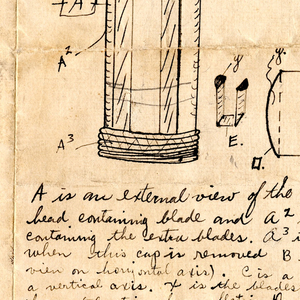 A
A²
A³
y
y
E.
D.
A is an external view of the
head containing blade and A²
containing the extra blades. A³ i
when this cap is removed B
view on horizontal axis). C is a
a vertical axis. X is the blades